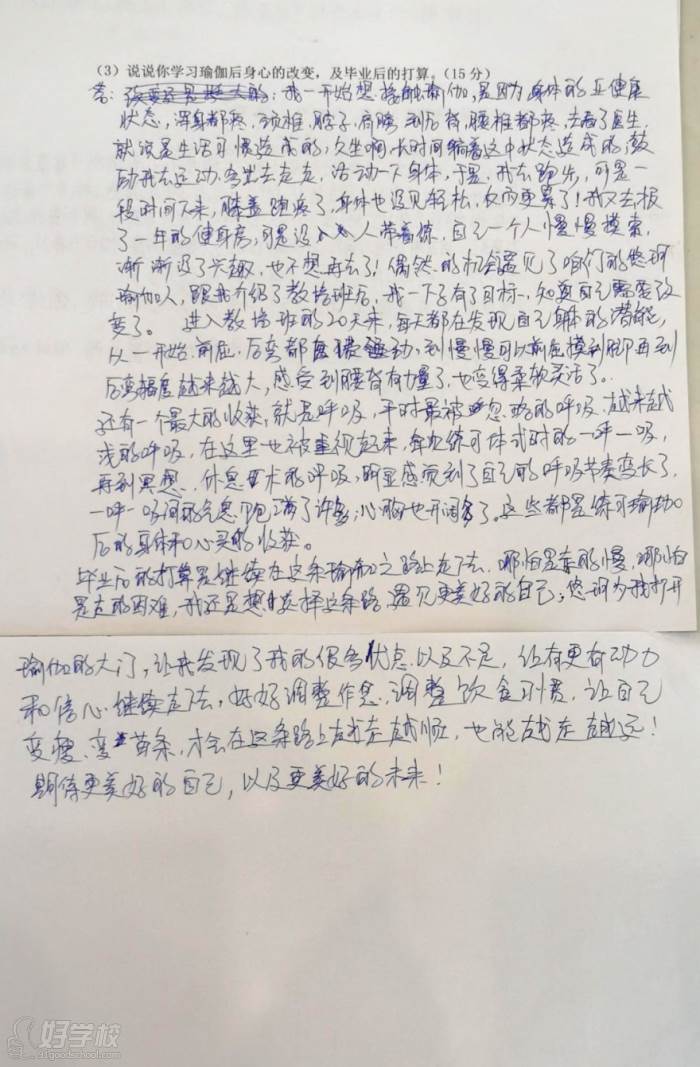 (3) 说说你学习瑜伽后身心的改变，及毕业后的打算。(15分)
答：改变还是挺大的：我一开始想接触瑜伽，是因为身体的亚健康
状态，浑身都疼，颈椎、脖子、肩膀到后背，腰椎都疼，去看了医生，
就说是生活习惯造成的，久坐啊，长时间缩着这中状态造成的，鼓
励我去运动，多出去走走，活动一下身体，于是，我去跑步，可是一
段时间下来，膝盖跑疼了，身体也没见轻松，反而更累了！我又去报
了一年的健身房，可是没人带着练，自己一个人慢慢摸索，
渐渐没了兴趣，也不想再去了！偶然的机会遇见了咱们的悠珂
瑜伽人，跟我介绍了教培班后，我一下子有了目标，知道自己需要改
变了。 进入教培班的20天来，每天都在发现自己身体的潜能，
从一开始前屈、后弯都，到慢慢可以前屈摸到脚再到
后弯幅度越来越大，感受到腰背有力量了，也变得柔软灵活了。
还有一个最大的收获，就是呼吸，平时最被忽略的呼吸，越来越
浅的呼吸，在这里也被重视起来，每次练习体式时的一呼一吸，
再到冥想、休息术的呼吸，明显感觉到了自己的呼吸节奏变长了，
一呼一吸间的气息饱满了许多，心胸也开阔多了。这些都是练习瑜伽
后的身体和心灵的收获。
毕业后的打算是继续在这条瑜伽之路上走下去，哪怕是走的慢，哪怕
是走的困难，我还是想选择这条路，遇见更美好的自己；悠珂为我打开
瑜伽的大门，让我发现了我的很多状态以及不足，让有更有动力
和信心继续走下去，好好调整作息，调整饮食习惯，让自己
变瘦、变苗条，才会在这条路上越走越顺，也能越走越远！
期待更美好的自己，以及更美好的未来！
好学校
91goodschool.com